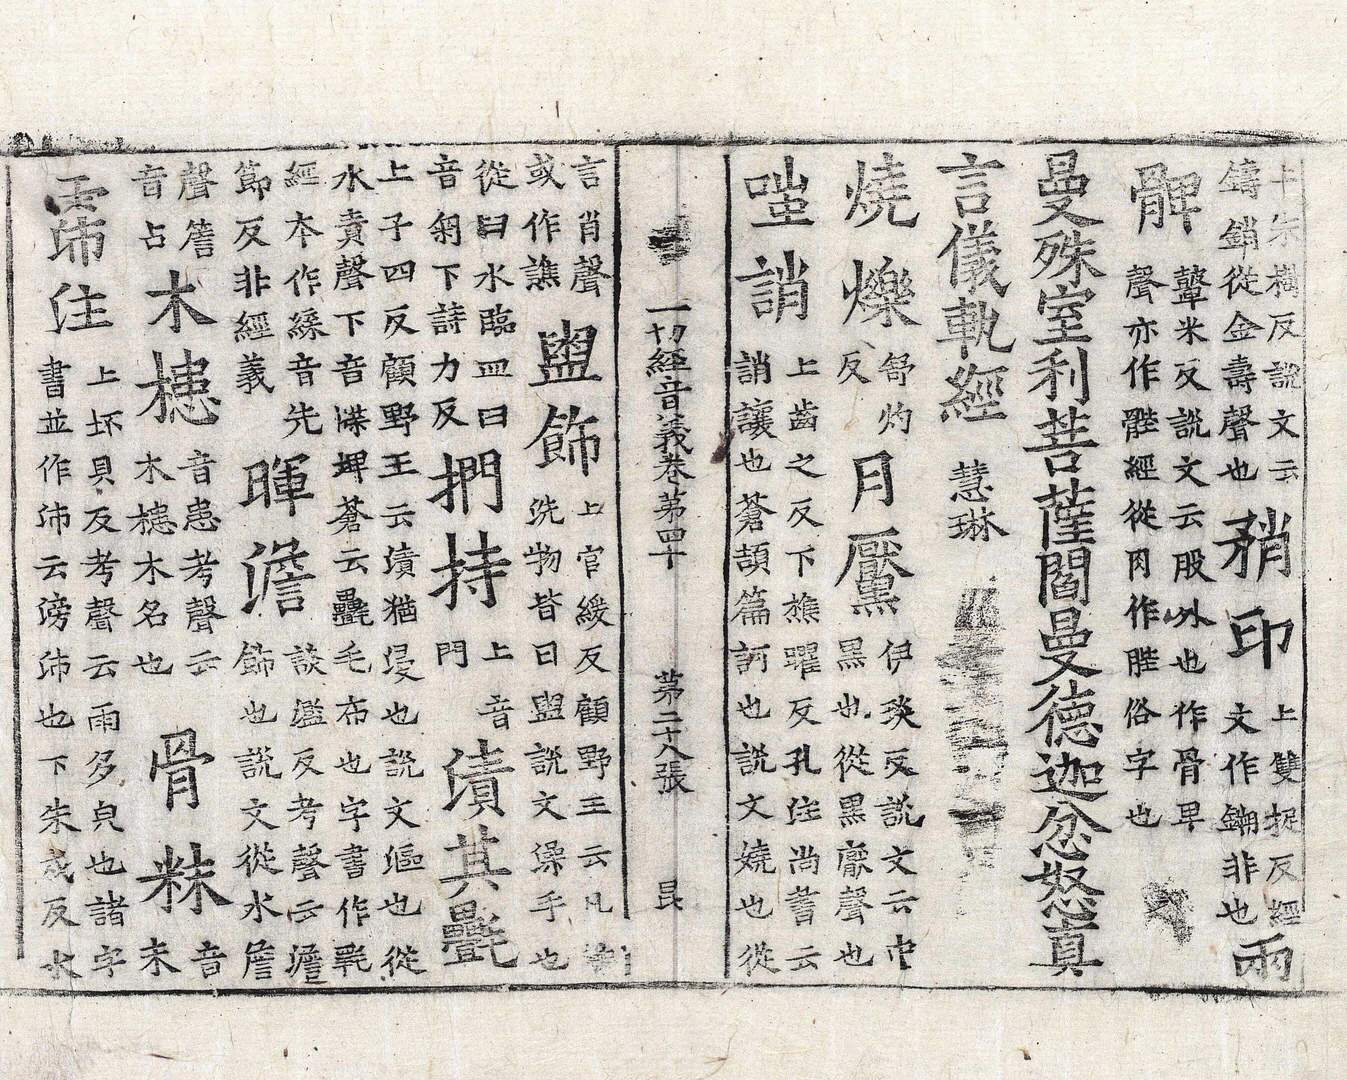 上朱樹反說文云
鑄銷從金壽聲也
矟印
上雙捉反經
文作鎙非也
兩
髀
鼙米反說文云股外也作骨卑
聲亦作䏶經從肉作䏶俗字也
曼殊室利菩薩閻曼德迦忿怒真
言儀軌經
慧琳
燒爍
舒灼
反
月黶
伊琰反說文云中
黑也從黑厭聲也
嗤誚
上齒之反下樵曜反孔注尚書云
誚讓也蒼頡篇訶也說文嬈也從
一切經音義卷第四十
第二十八張
昆
言肖聲
或作譙
盥飾
上官緩反顧野王云凡
洗物皆曰盥說文澡手也
從臼水臨皿臼
音匊下詩力反
捫持
上音
門
漬其㲲
上子四反顧野王云漬猶浸也說文漚也從
水責聲下音牒埤蒼云㲲毛布也字書作㲲
經本作緤音先
節反非經義
暉澹
談濫反考聲云澹
飾也說文從水詹
聲簷
音占
木槵
音患考聲云
木槵木名也
骨㖑
音
末
霈注
上坏貝反考聲云雨多皃也諸字
書並作沛云滂沛也下朱戍反水